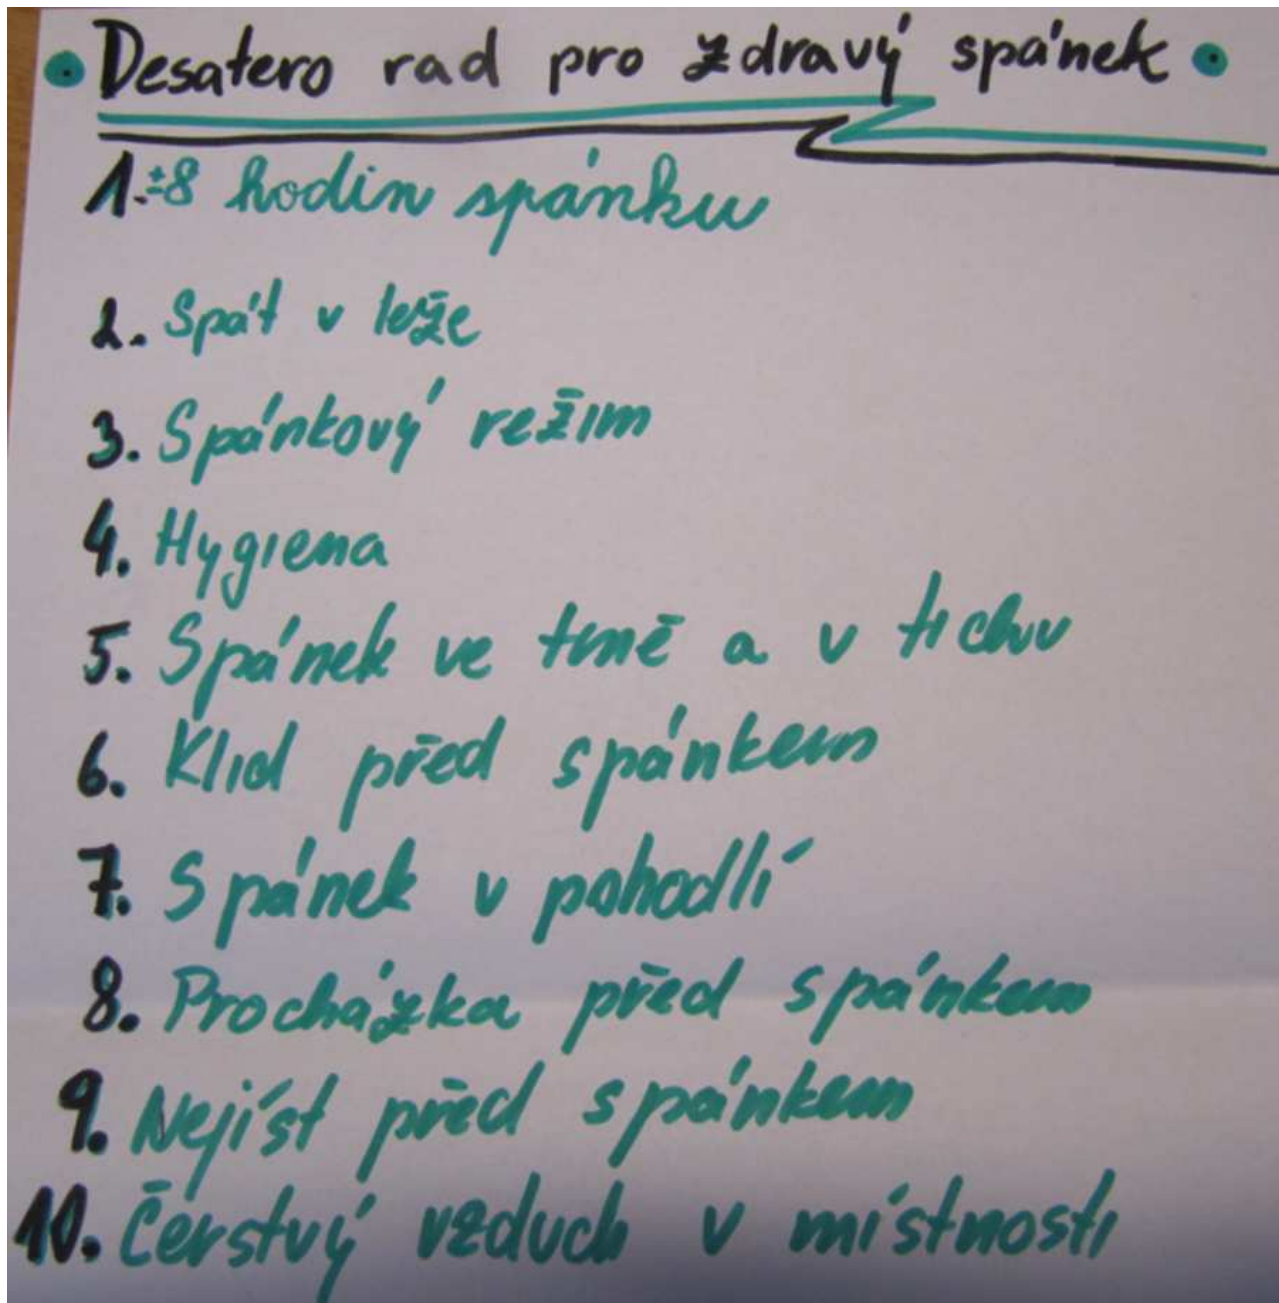 • Desatero rad pro zdravý spánek •
1. ±8 hodin spánku
2. Spát v leže
3. Spánkový režim
4. Hygiena
5. Spánek ve tmě a v tichu
6. Klid před spánkem
7. Spánek v pohodlí
8. Procházka před spánkem
9. Nejíst před spánkem
10. Čerstvý vzduch v místnosti